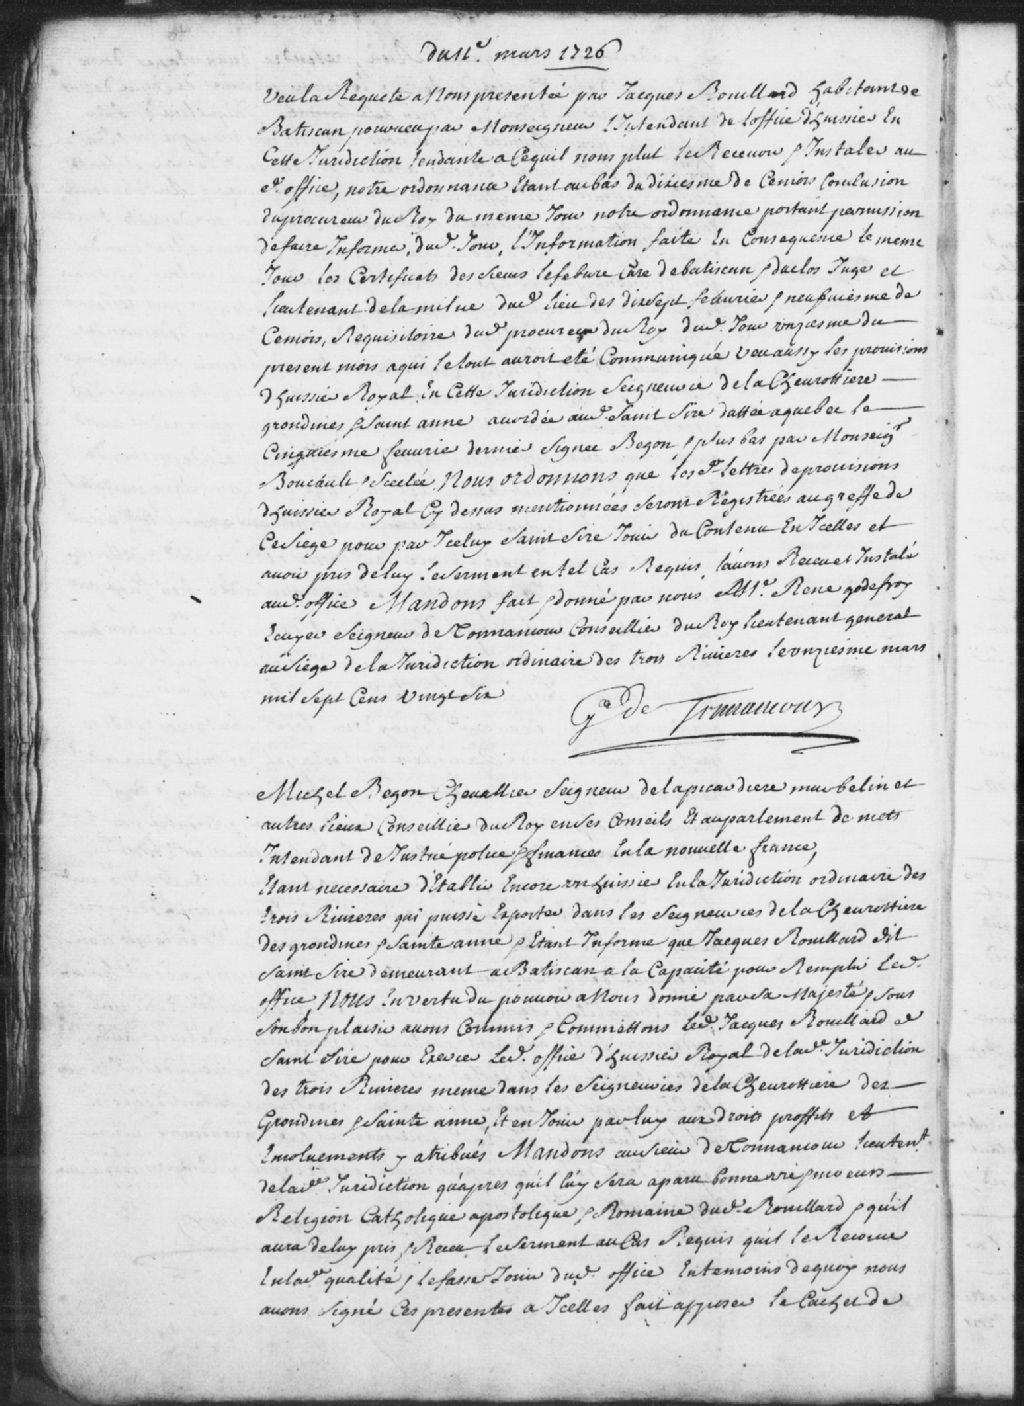 du 11e. mars 1726
Veu la Requete a Nous presentée par Jacques Rouillard habitant de
Batiscan pourveu par Monseigneur l'Intendant de loffice d'huissier En
Cette Juridiction tendante a Cequil nous plut le Recevoir & Instaler au
d. office, notre ordonnance Etant au bas du dixiesme de Cemois Conclusion
du procureur du Roy du meme Jour notre ordonnance portant permission
de faire Informer, dud. Jour, l'Information faite En Consequence le meme
Jour les Certificats des sieurs lefebure Curé de batiscan & duclos Juge et
lieutenant de la milice dud. lieu des dixsept feburier & neufuiesme de
Cemois, Requisitoire dud. procureur du Roy dud. Jour unziesme du
present mois aqui le tout auroit eté Communiqué veu aussy les provisions
d'huissier Royal En Cette Juridiction Seigneurie de la Cheurottiere
grondines & Saint anne accordée aud. Saint Sire dattée a quebec le
Cinquiesme feurier dernier signee Begon, & plus bas par Monseigr.
Boucault & Scelée, Nous ordonnons que lesd. lettres de provisions
d'huissier Royal Cy dessus mentionnées seront Régistrées au greffe de
Ce siege pour par Iceluy Saint Sire Jouir du Contenu En Icelles et
avoir pris de luy le serment en tel Cas Requis, l'avons Receu et Instalé
aud. office Mandons fait & donné par nous Me. Rene godefroy
Ecuyer Seigneur de Tonnancour Conseillier du Roy lieutenant general
au Siege de la Juridiction ordinaire des trois Rivieres le unziesme mars
mil sept Cens vingt Six
Gd. de Tonnancour
Michel Begon Chevallier Seigneur de la picardiere murbelin et
autres lieux Conseillier du Roy en ses Conseils Et au parlement de mets
Intendant de Justice police & finances En la nouvelle france,
Etant necessaire d'Etablir Encore un huissier En la Juridiction ordinaire des
trois Rivieres qui puisse Exploter dans les Seigneuries de la Cheurottiere
des grondines & Sainte anne & Etant Informé que Jacques Rouillard dit
Saint Sire demeurant a Batiscan a la Capacité pour Remplir Led.
office, Nous En vertu du pouvoir a Nous donné par sa Majesté & sous
son bon plaisir avons Commis & Commettons Led. Jacques Rouillard d
Saint Sire pour Exercer Led. office d'huissier Royal de lad. Juridiction
des trois Rivieres meme dans les Seigneuries de la Cheurottiere des
Grondines & Sainte anne, Et en Jouir par luy aux droits proffits et
Emoluements y atribués Mandons au sieur de Tonnancour lieutent.
de lad. Juridiction qu'apres qu'il luy sera aparu bonne vie & moeurs
Religion Catholique apostolique & Romaine dud. Rouillard & qu'il
aura de luy pris & Receu le serment au Cas Requis quil le Recoive
En lad. qualité & le fasse Jouir dud. office En temoins de quoy nous
avons signé Ces presentes a Icelles fait apposer le Cachet de